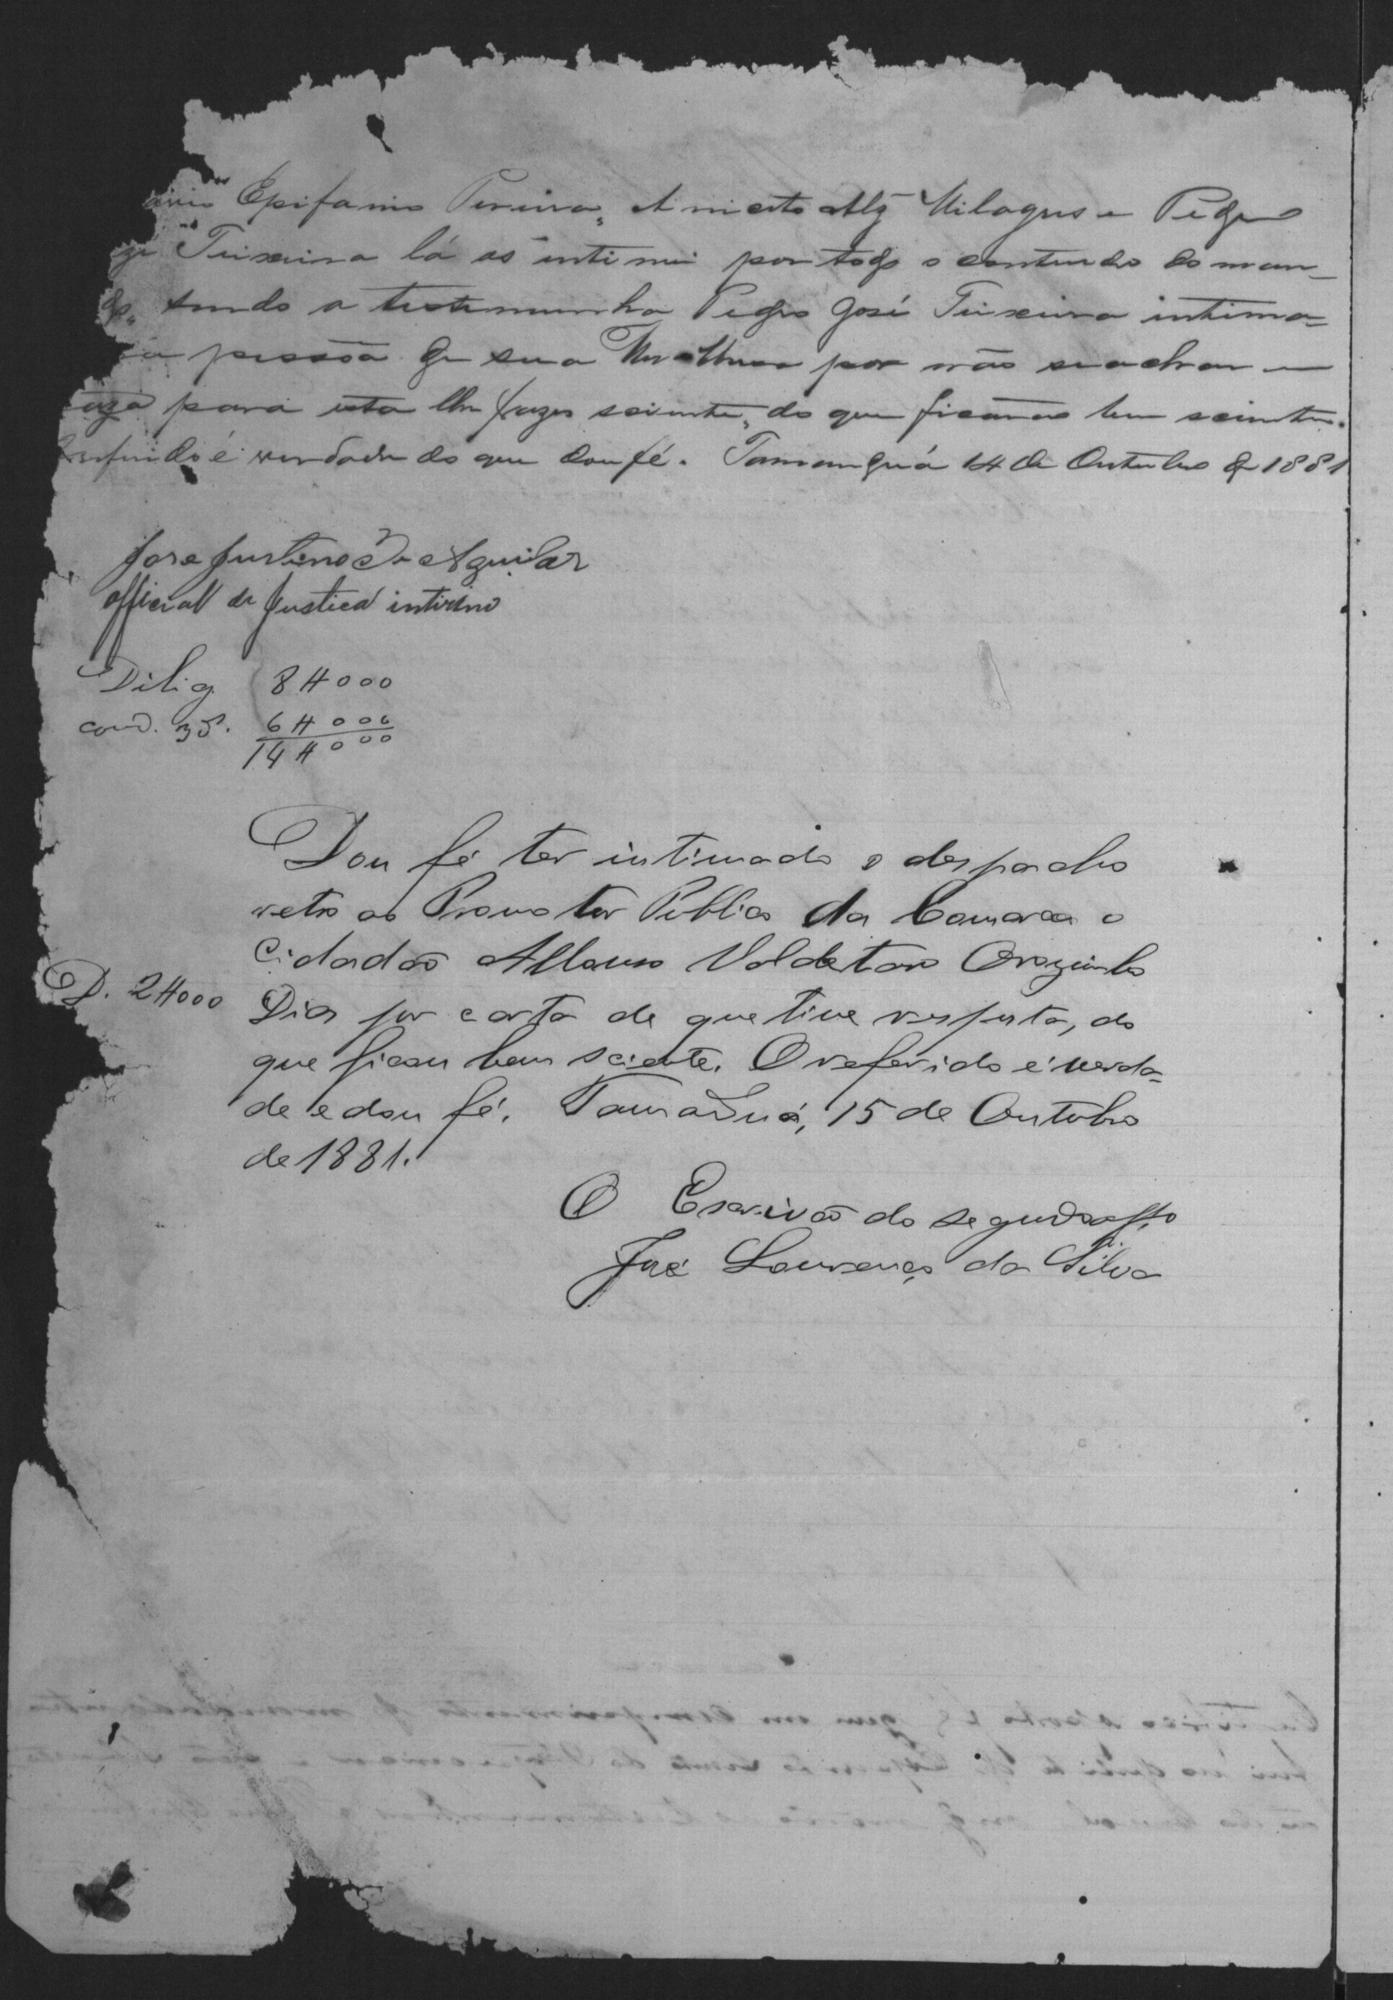 Epifanio Pereira, Aniceto Alz Milagres e Pedro
Teixeira lá os intimei por todo o contendo do man-
sendo a testemunha Pedro José Teixeira intima-
pessôa de sua Mulher por não se achar em
para esta lhe fazer sciente, do que ficarão bem scientes.
referido é verdade do que dou fé. Tamanduá 14 de Outubro de 1881
José Justino de Aguilar
official de Justica interino
Dilig. 8#000
cond. 6#000
14#000
Dou fé ter intimado o despacho
retro ao Promotor Publico da Comarca o
Cidadão Affonso
D. 2#000
Dias por carta de que tive resposta, do
que ficou bem sciente. O referido é verda-
de e dou fé. Tamanduá, 15 de Outubro
de 1881.
O Escrivão do segundo off.º
José Lourenço da Silva